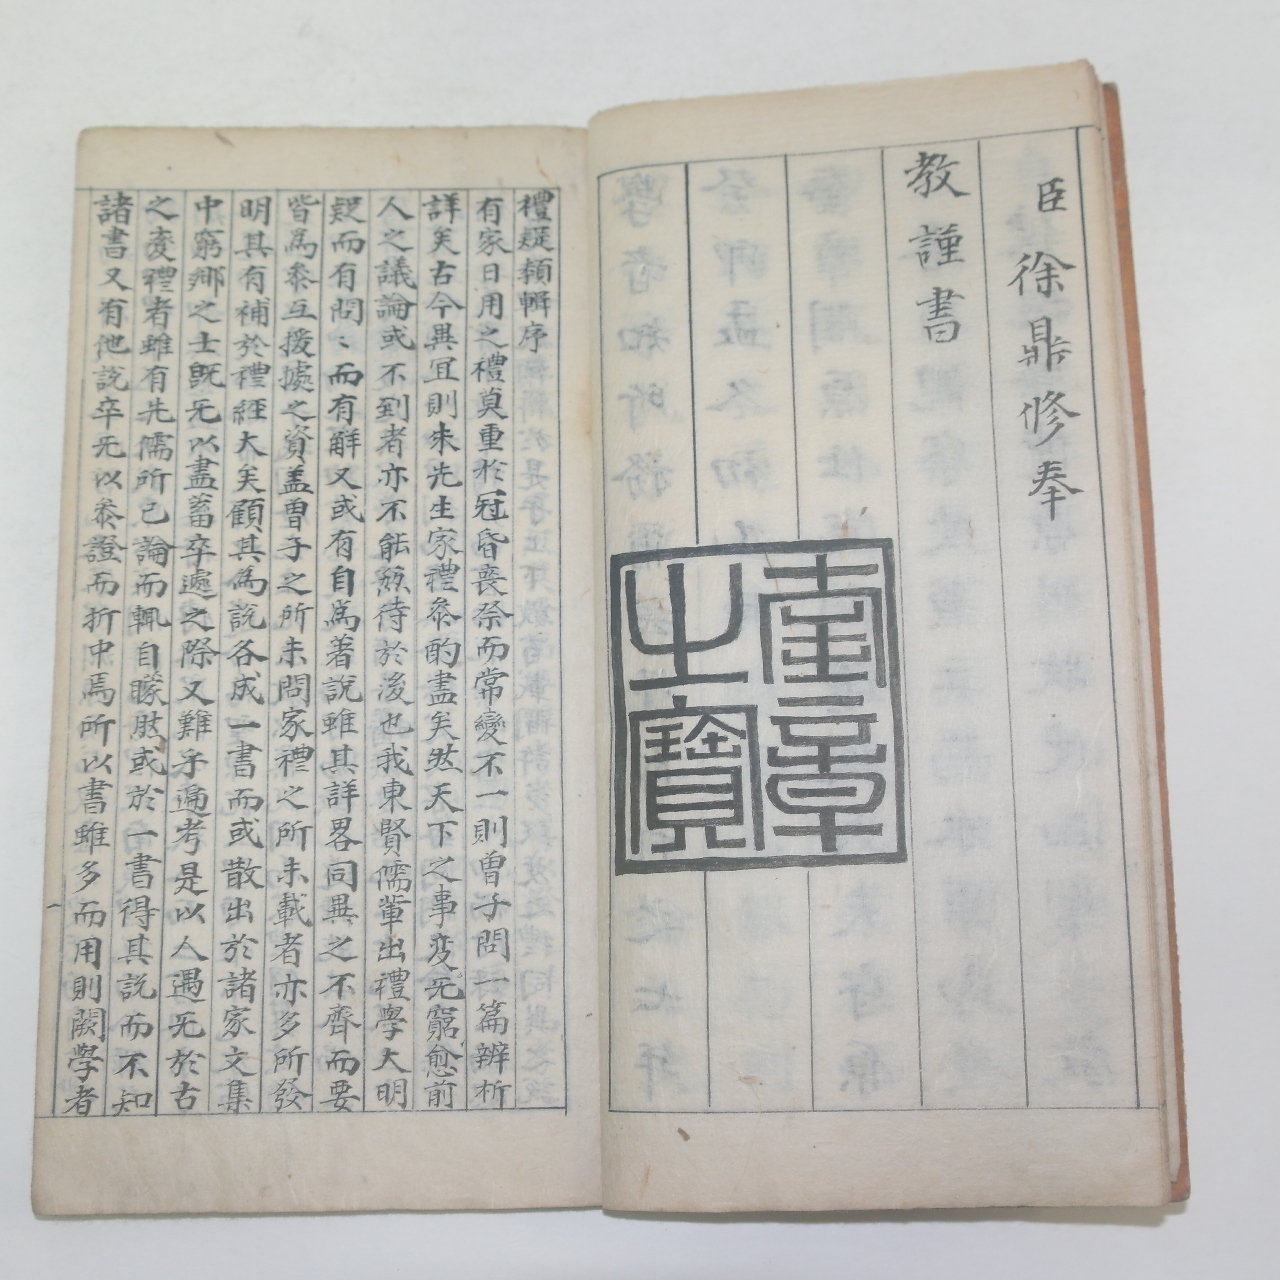 臣徐鼎修奉
教謹書
奎章
之寶
禮疑類輯序
有家日用之禮莫重於冠昏喪祭而常變不一則曽子問一篇辨析
詳矣古今異宜則朱先生家禮叅酌盡矣然天下之事変无窮愈前
人之議論或不到者亦不能㷼待於後也我東賢儒軰出禮學大明
疑而有問〻而有觧又或有自為著說雖其詳畧同異之不齊而要
皆為叅互援據之資盖曽子之所未問家禮之所未載者亦多所發
明其有補於禮經大矣顧其為說各成一書而或散出於諸家文集
中窮鄉之士旣无以盡蓄卒遽之際又難乎遍考是以人遇无於古
之変禮者雖有先儒所已論而輒自矇眬或於一書得其說而不知
諸書又有他說卒无以叅證而折中焉所以書雖多而用則闕學者